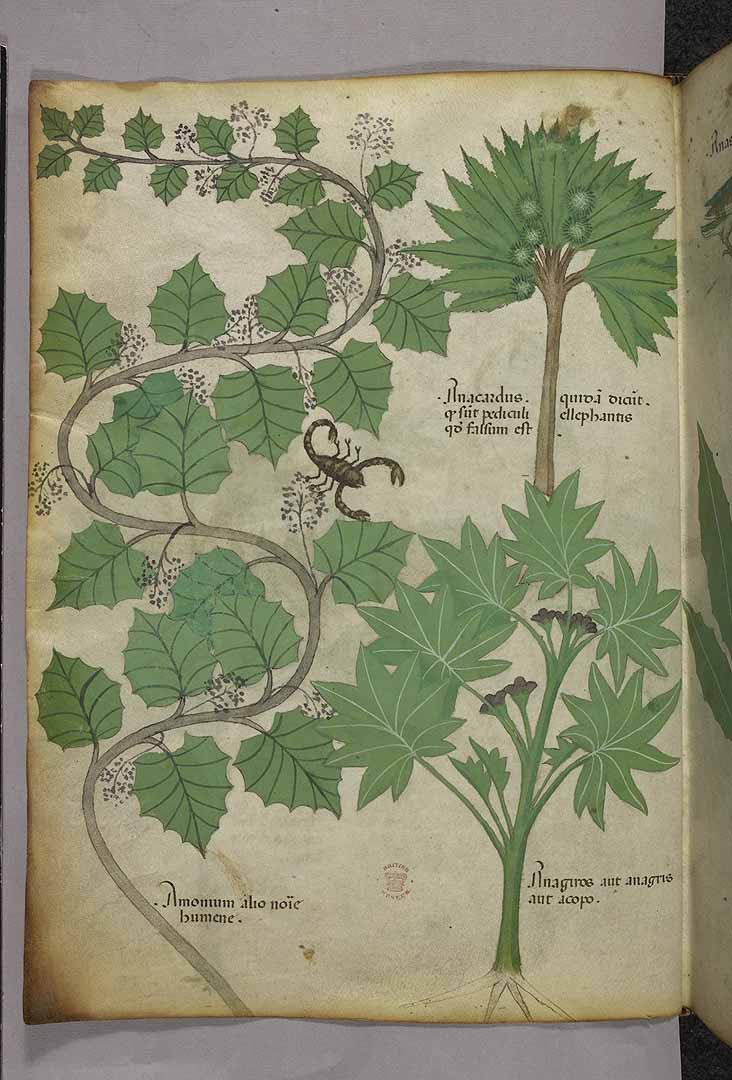 Anacardus. quidā dicūt.
q̄ sūt pediculi ellephantis
qd̄ falsum est.
Anagiros aut anagris
aut acopo.
Amomum alio noīe
humene.
BRITISH
MUSEUM
Anas